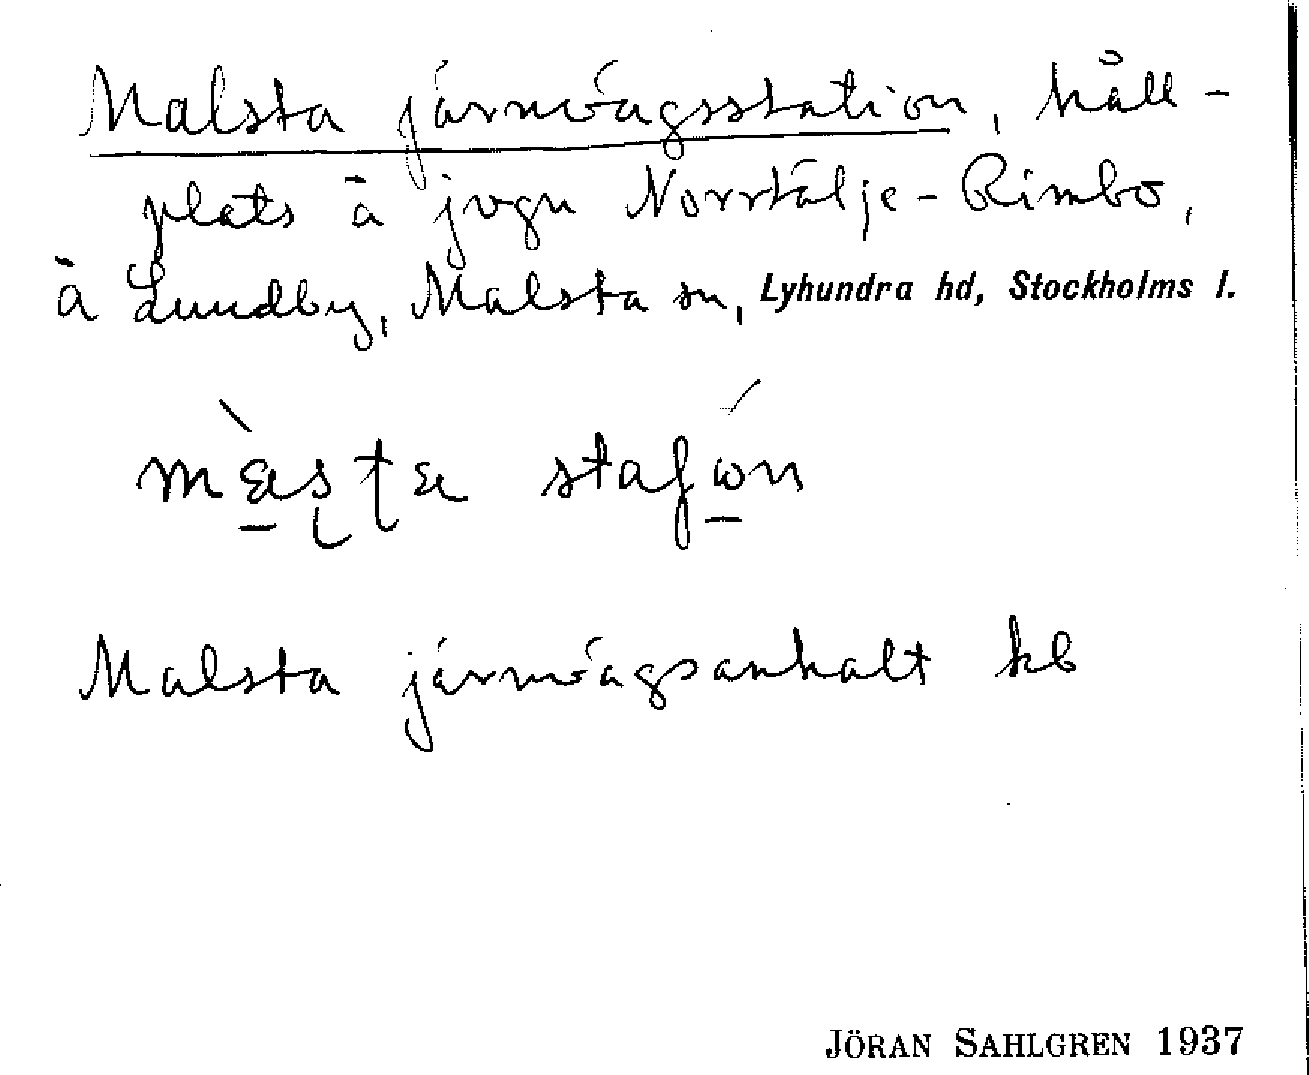 Malsta järnvägsstation, håll-
plats å jvgn Norrtälje-Rimbo,
å Lundby, Malsta sn, Lyhundra hd, Stockholms l.
Malsta järnvägsanhalt kb
JÖRAN SAHLGREN 1937